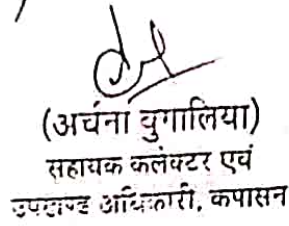 (अर्चना वुगालिया)
सहायक कलेक्टर एवं
उपखण्ड अधिकारी, कपासन